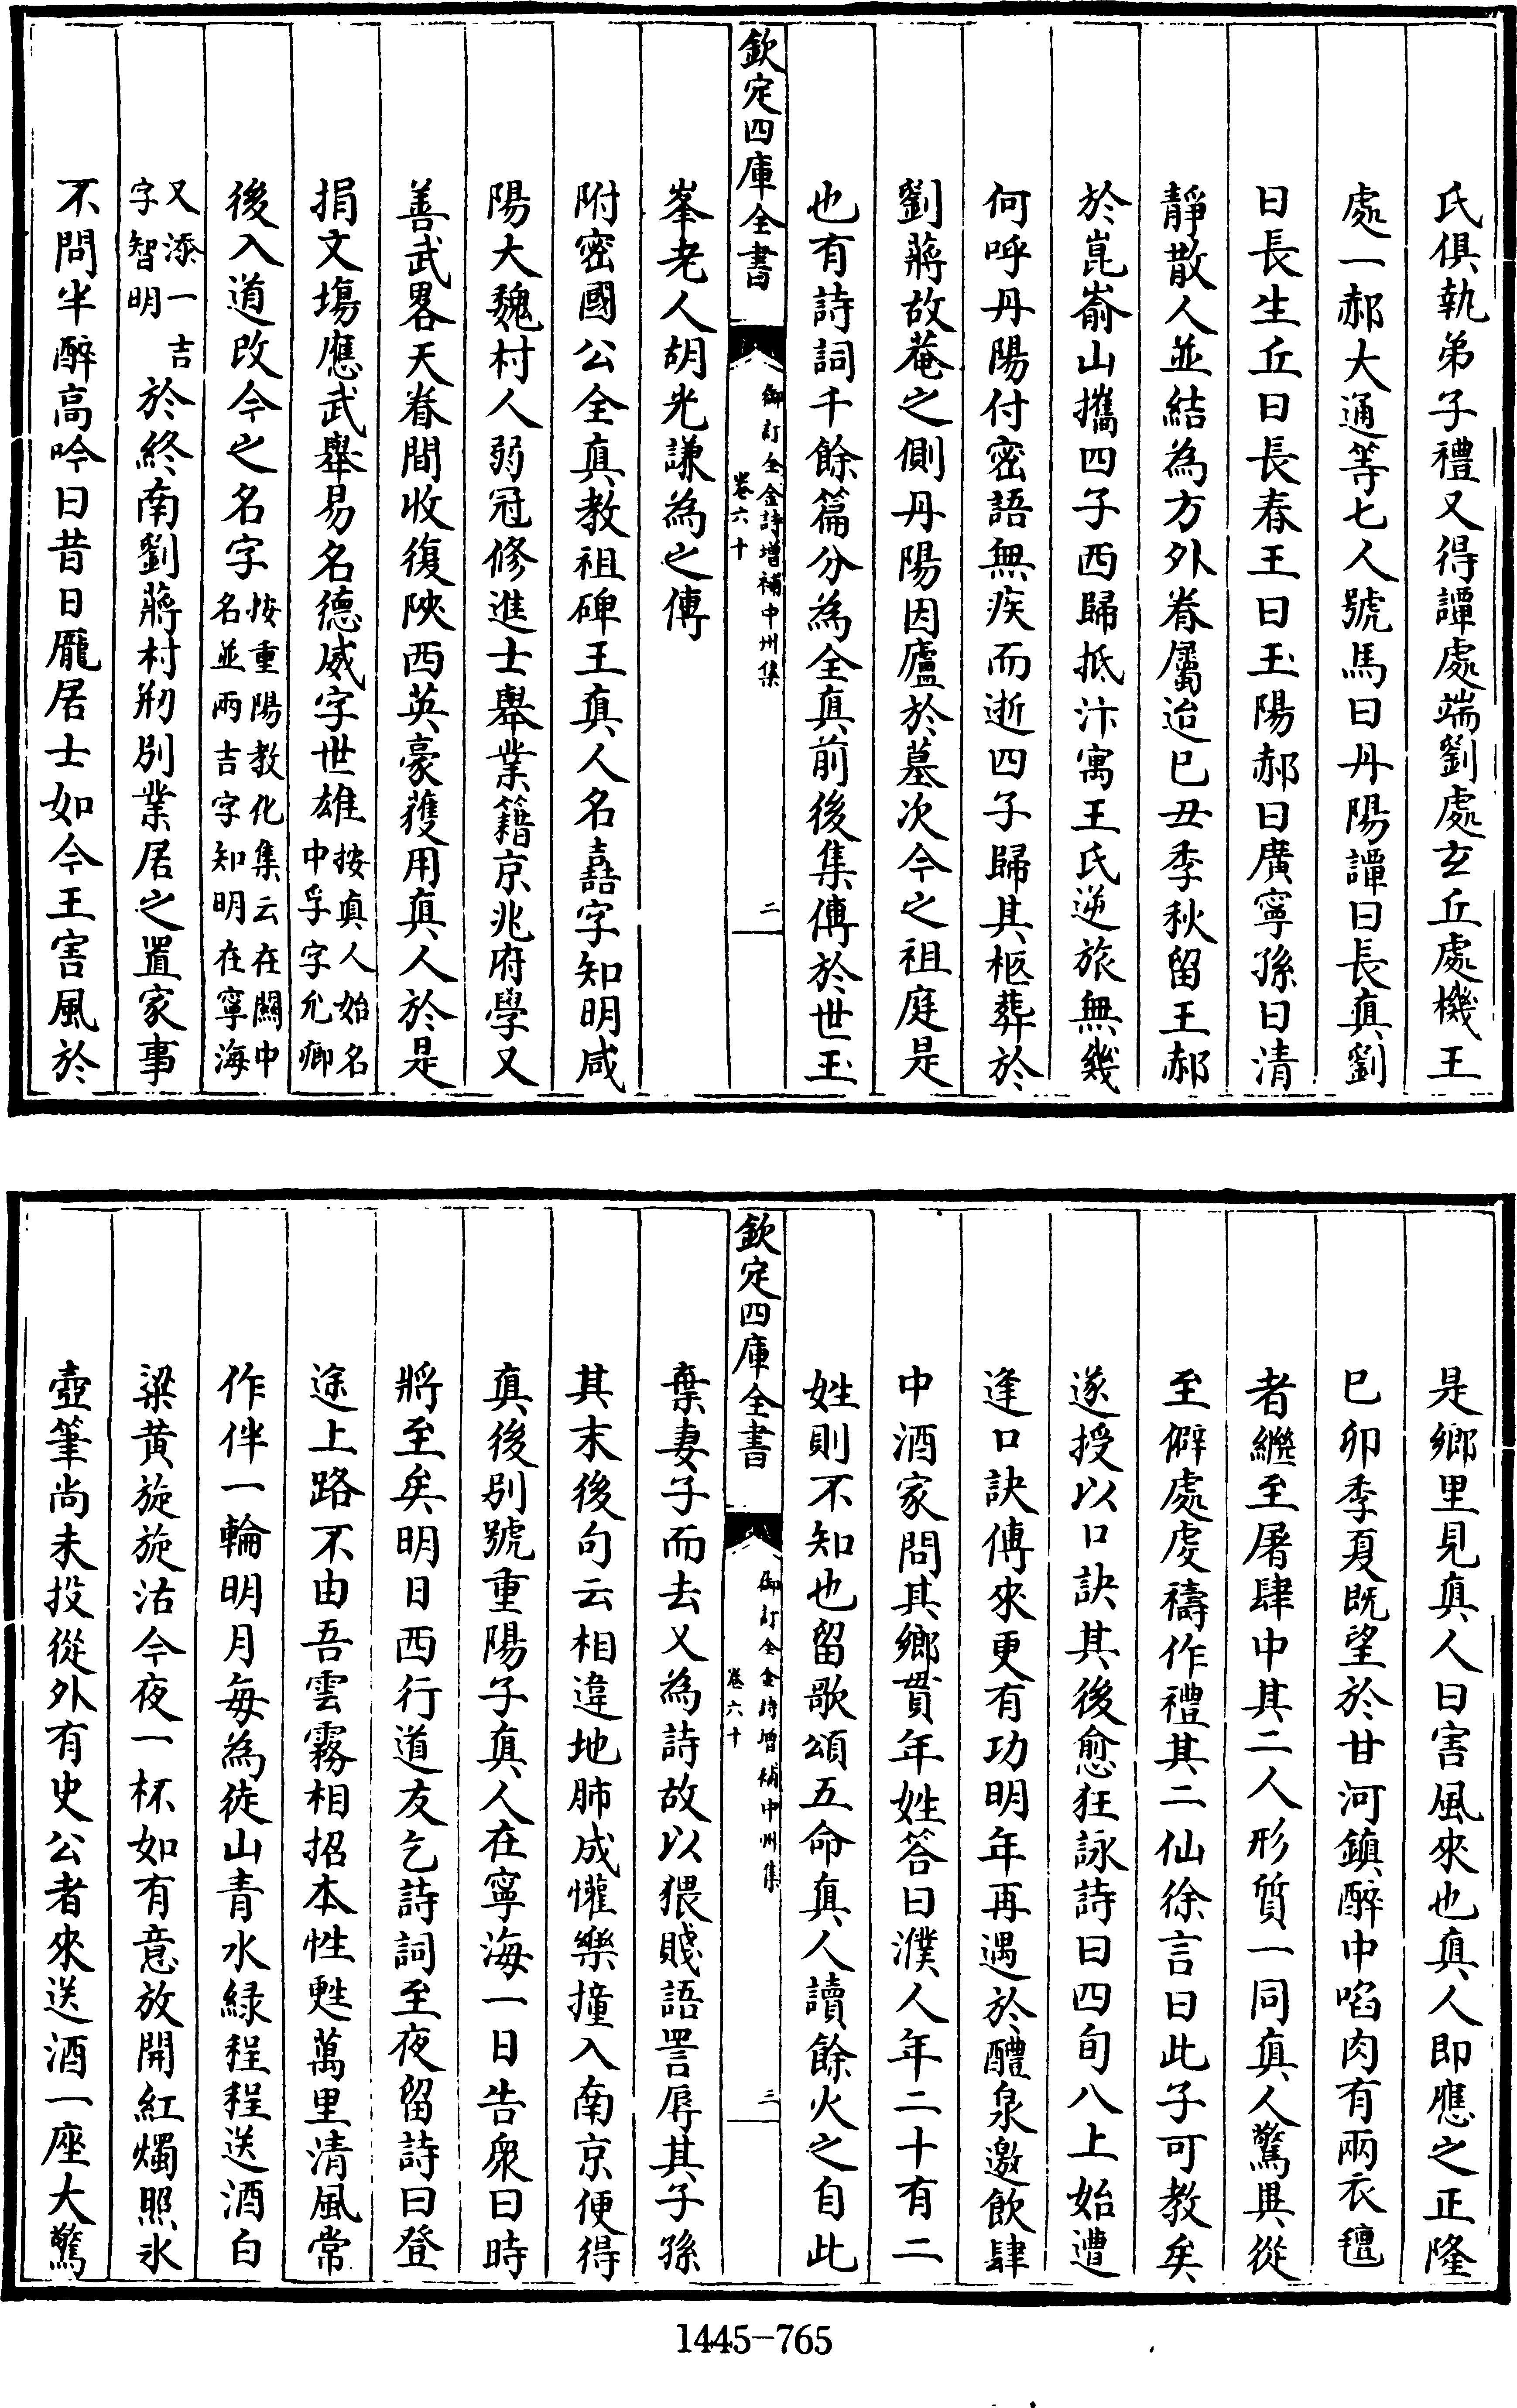 氏俱執弟子禮又得譚處端劉處玄丘處機王
處一郝大通等七人號馬曰丹陽譚曰長真劉
曰長生丘曰長春王曰玉陽郝曰廣寧孫曰清
靜散人並結為方外眷屬迨巳丑季秋留王郝
於崑崳山攜四子西歸抵汴寓王氏逆旅無幾
何呼丹陽付密語無疾而逝四子歸其柩葬於
劉蔣故菴之側丹陽因廬於墓次今之祖庭是
也有詩詞千餘篇分為全真前後集傳於世玉
欽定四庫全書
御訂全金詩增補中州集
卷六十
二
峯老人胡光謙為之傳
附密國公全真教祖碑王真人名嚞字知明咸
陽大魏村人弱冠修進士舉業籍京兆府學又
善武畧天眷間收復陝西英豪獲用真人於是
捐文場應武舉易名德威字世雄按真人始名
中孚字允卿
後入道改今之名字按重陽教化集云在關中
名並兩吉字知明在寧海
又添一吉
字智明
於終南劉蔣村剏別業居之置家事
不問半醉高吟曰昔日龐居士如今王害風於
是鄉里見真人曰害風來也真人即應之正隆
巳卯季夏既望於甘河鎮醉中啗肉有兩衣氊
者繼至屠肆中其二人形質一同真人驚異從
至僻處虔禱作禮其二仙徐言曰此子可教矣
遂授以口訣其後愈狂詠詩曰四旬八上始遭
逢口訣傳來更有功明年再遇於醴泉邀飲肆
中酒家問其鄉貫年姓答曰濮人年二十有二
姓則不知也留歌頌五命真人讀餘火之自此
欽定四庫全書
御訂全金詩增補中州集
卷六十
三
棄妻子而去又為詩故以猥賤語詈辱其子孫
其末後句云相違地肺成懽樂撞入南京便得
真後別號重陽子真人在寧海一日告衆曰時
將至矣明日西行道友乞詩詞至夜留詩曰登
途上路不由吾雲霧相招本性甦萬里清風常
作伴一輪明月每為徒山青水緑程程送酒白
粱黄旋旋沽今夜一杯如有意放開紅燭照氷
壺筆尚未投從外有史公者來送酒一座大驚
1445-765